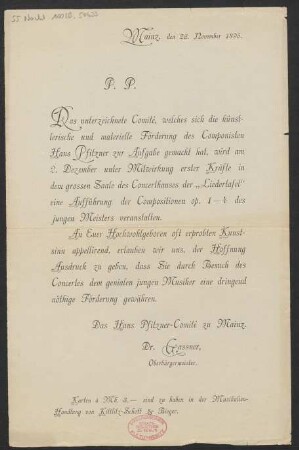 Mainz, den 22. November 1895.
P. P.
Das unterzeichnete Comité, welches sich die künst-
lerische und materielle Förderung des Componisten
Hans Pfitzner zur Aufgabe gemacht hat, wird am
2. Dezember unter Mitwirkung erster Kräfte in
dem grossen Saale des Concerthauses der „Liedertafel"
eine Aufführung der Compositionen op. 1–4 des
jungen Meisters veranstalten.
An Euer Hochwohlgeboren oft erprobten Kunst-
sinn appellirend, erlauben wir uns, der Hoffnung
Ausdruck zu geben, dass Sie durch Besuch des
Concertes dem genialen jungen Musiker eine dringend
nöthige Förderung gewähren.
Das Hans Pfitzner-Comité zu Mainz.
Dr. Gassner,
Oberbürgermeister.
Karten à Mk. 3.— sind zu haben in der Musikalien-
Handlung von Kittlitz-Schott &